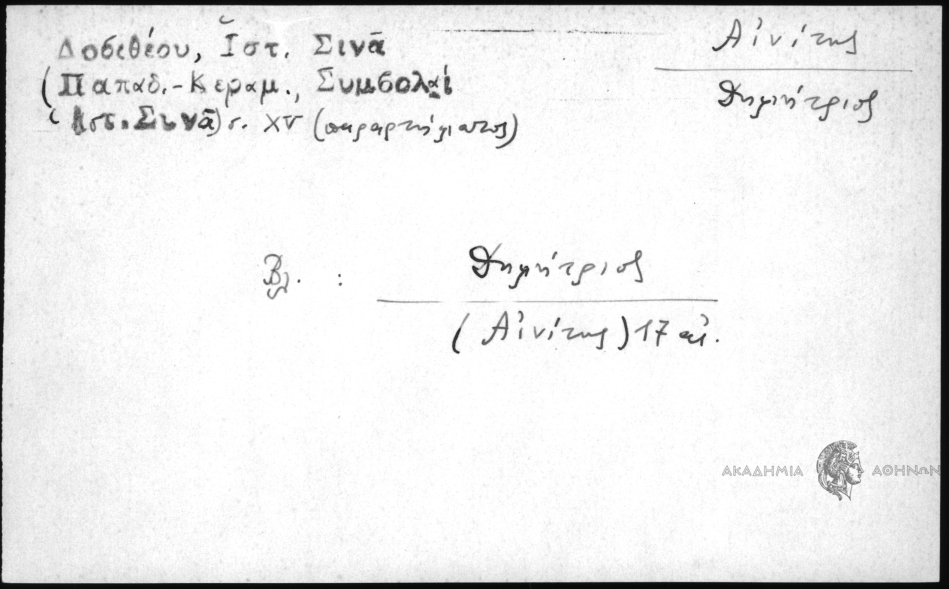 Δοσιθέου, Ἱστ. Σινᾶ
(Παπαδ.-Κεραμ., Συμβολαὶ
Ἱστ. Σινᾶ) σ. XV (παραρτήματος)
Αἰνίτης
Δημήτριος
Βλ. : Δημήτριος
(Αἰνίτης) 17 αἰ.
ΑΚΑΔΗΜΙΑ ΑΘΗΝΩΝ